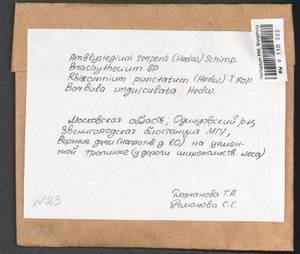 Amblystegium serpens (Hedw.) Schimp.
Brachythecium sp
Rhizomnium punctatum (Hedw) T. Kop.
Barbula unguiculata Hedw.
Московская область, Одинцовский р-н,
Звенигородская биостанция МГУ,
Верхние дачи (напротив д. 60) на цемен-
ной тропинке (у дороги широколиств. леса)
N23
Романова С.С.
MW 9 110 022